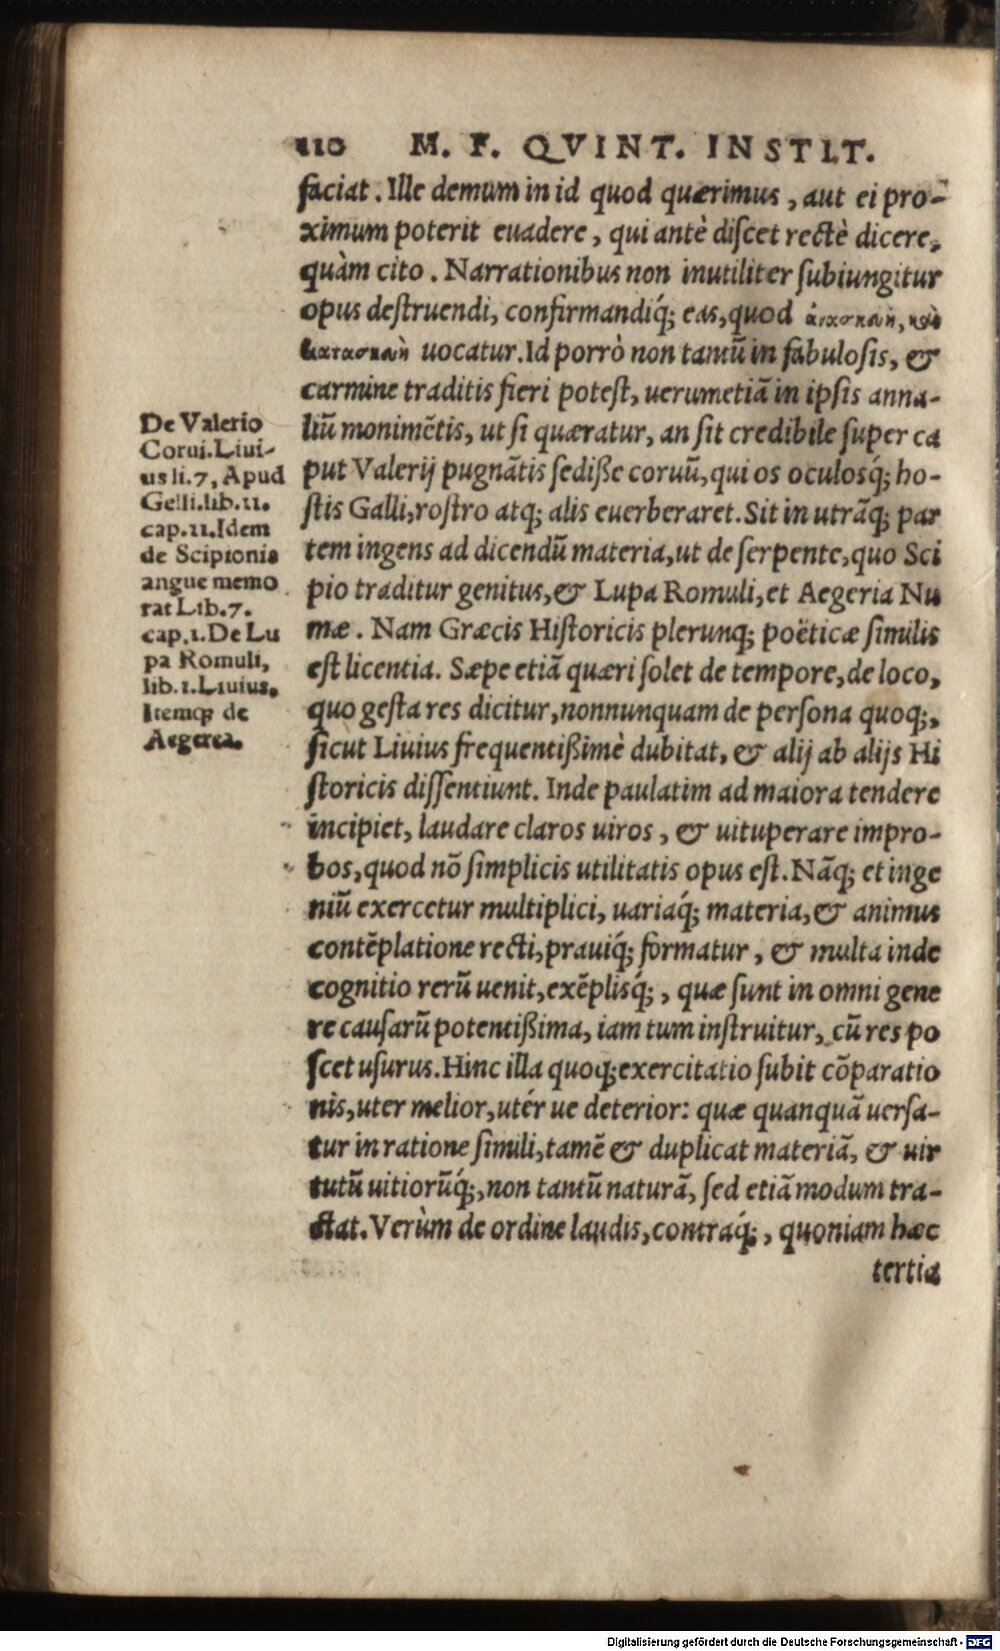 110 M. F. QVINT. INSTIT.
faciat. Ille demum in id quod quærimus, aut ei pro-
ximum poterit euadere, qui antè discet rectè dicere,
quàm cito. Narrationibus non inutiliter subiungitur
opus destruendi, confirmandiq́; eas, quod
uocatur. Id porrò non tantũ in fabulosis, &
carmine traditis fieri potest, uerumetiã in ipsis anna-
liũ monimẽtis, ut si quæratur, an sit credibile super ca
put Valerij pugnãtis sediße coruũ, qui os oculosq́; ho-
stis Galli, rostro atq; alis euerberaret. Sit in utrãq; par
tem ingens ad dicendũ materia, ut de serpente, quo Sci
pio traditur genitus, & Lupa Romuli, et Aegeria Nu
mæ. Nam Græcis Historicis plerunq; poëticæ similis
est licentia. Sæpe etiã quæri solet de tempore, de loco,
quo gesta res dicitur, nonnunquam de persona quoq;,
sicut Liuius frequentißimè dubitat, & alij ab alijs Hi
storicis dissentiunt. Inde paulatim ad maiora tendere
incipiet, laudare claros uiros, & uituperare impro-
bos, quod nõ simplicis utilitatis opus est. Nãq; et inge
niũ exercetur multiplici, uariaq́; materia, & animus
contẽplatione recti, prauiq́; formatur, & multa inde
cognitio rerũ uenit, exẽplisq́;, quæ sunt in omni gene
re causarũ potentißima, iam tum instruitur, cũ res po
scet usurus. Hinc illa quoq; exercitatio subit cõparatio
nis, uter melior, utér ue deterior: quæ quanquã uersa-
tur in ratione simili, tamẽ & duplicat materiã, & uir
tutũ uitiorũq́;, non tantũ naturã, sed etiã modum tra-
ctat. Verùm de ordine laudis, contraq́;, quoniam hæc
tertia
De Valerio
Corui. Liui-
us li. 7, Apud
Gelli. lib. 11.
cap. 11. Idem
de Scipionis
angue memo
rat Lib. 7.
cap. 1. De Lu
pa Romuli,
lib. 1. Liuius.
Itemq; de
Aegerea.
Digitalisierung gefördert durch die Deutsche Forschungsgemeinschaft - DFG